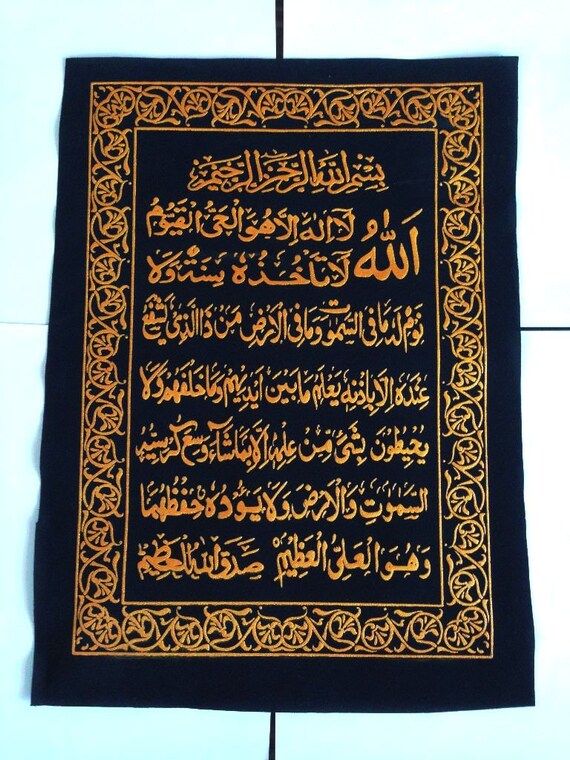 بسم الله الرحمن الرحيم
الله لا اله الا هو الحى القيوم
لا تاخذه سنة ولا
نوم له ما فى السموات وما فى الارض من ذا الذى يشفع
عنده الا باذنه يعلم ما بين ايديهم وما خلفهم ولا
يحيطون بشئ من علمه الا بما شاء وسع كرسيه
السموت والارض ولا يؤده حفظهما
وهو العلى العظيم صدق الله العظيم